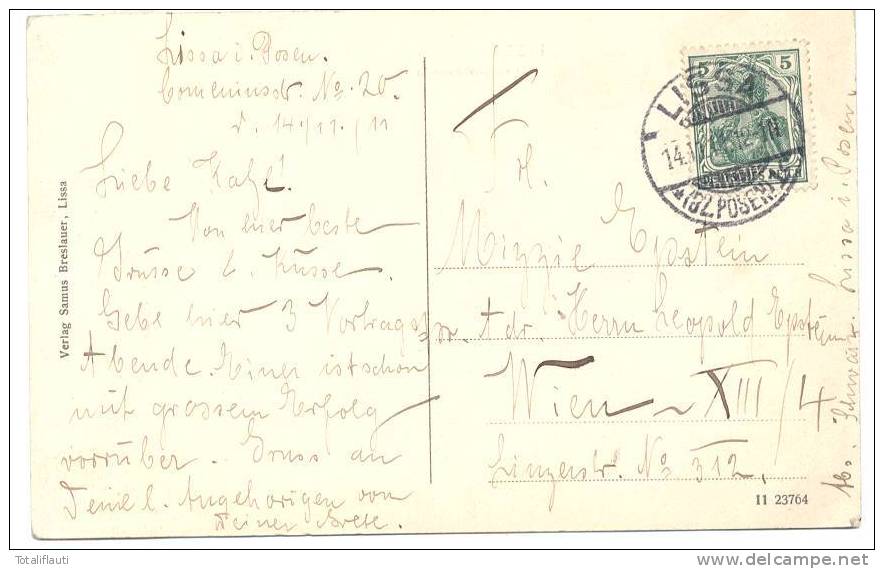 Lissa i. Posen.
Comeniusstr. No. 20.
d. 14./11./11
Liebe Katze!
Von hier beste
Grüsse & Küsse.
Gebe hier 3 Vortrags
Abende. Einer ist schon
mit grossem Erfolg
vorrüber. Gruss an
Deine l. Angehörigen von
Deiner Grete.
Verlag Samus Breslauer, Lissa
Frl.
Mizzie Epstein
Adr. Herrn Leopold Epstein
Wien - XIII/4
Linzerstr. No 312.
Abs. Schwarz Lissa i. Posen.
5 5
DEUTSCHES REICH
LISSA
14.11.11
(BZ. POSEN)
11 23764
Totaliflauti
www.delcampe.net